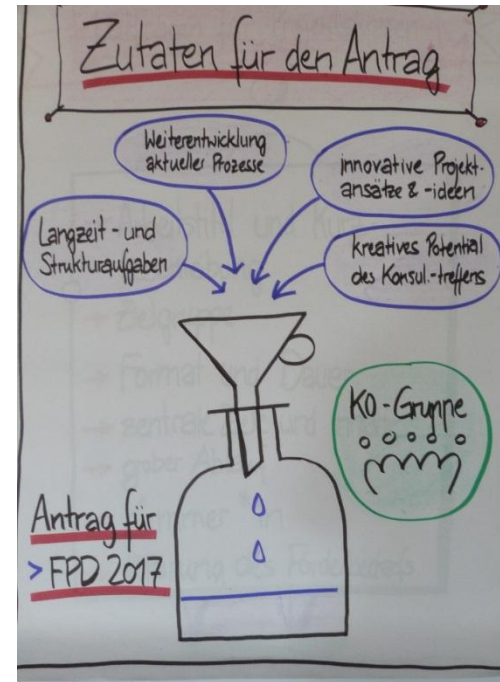 Zutaten für den Antrag
Weiterentwicklung
aktueller Prozesse
innovative Projekt-
ansätze & -ideen
Langzeit- und
Strukturaufgaben
kreatives Potential
des Konsul.-treffens
KO-Gruppe
Antrag für
> FPD 2017